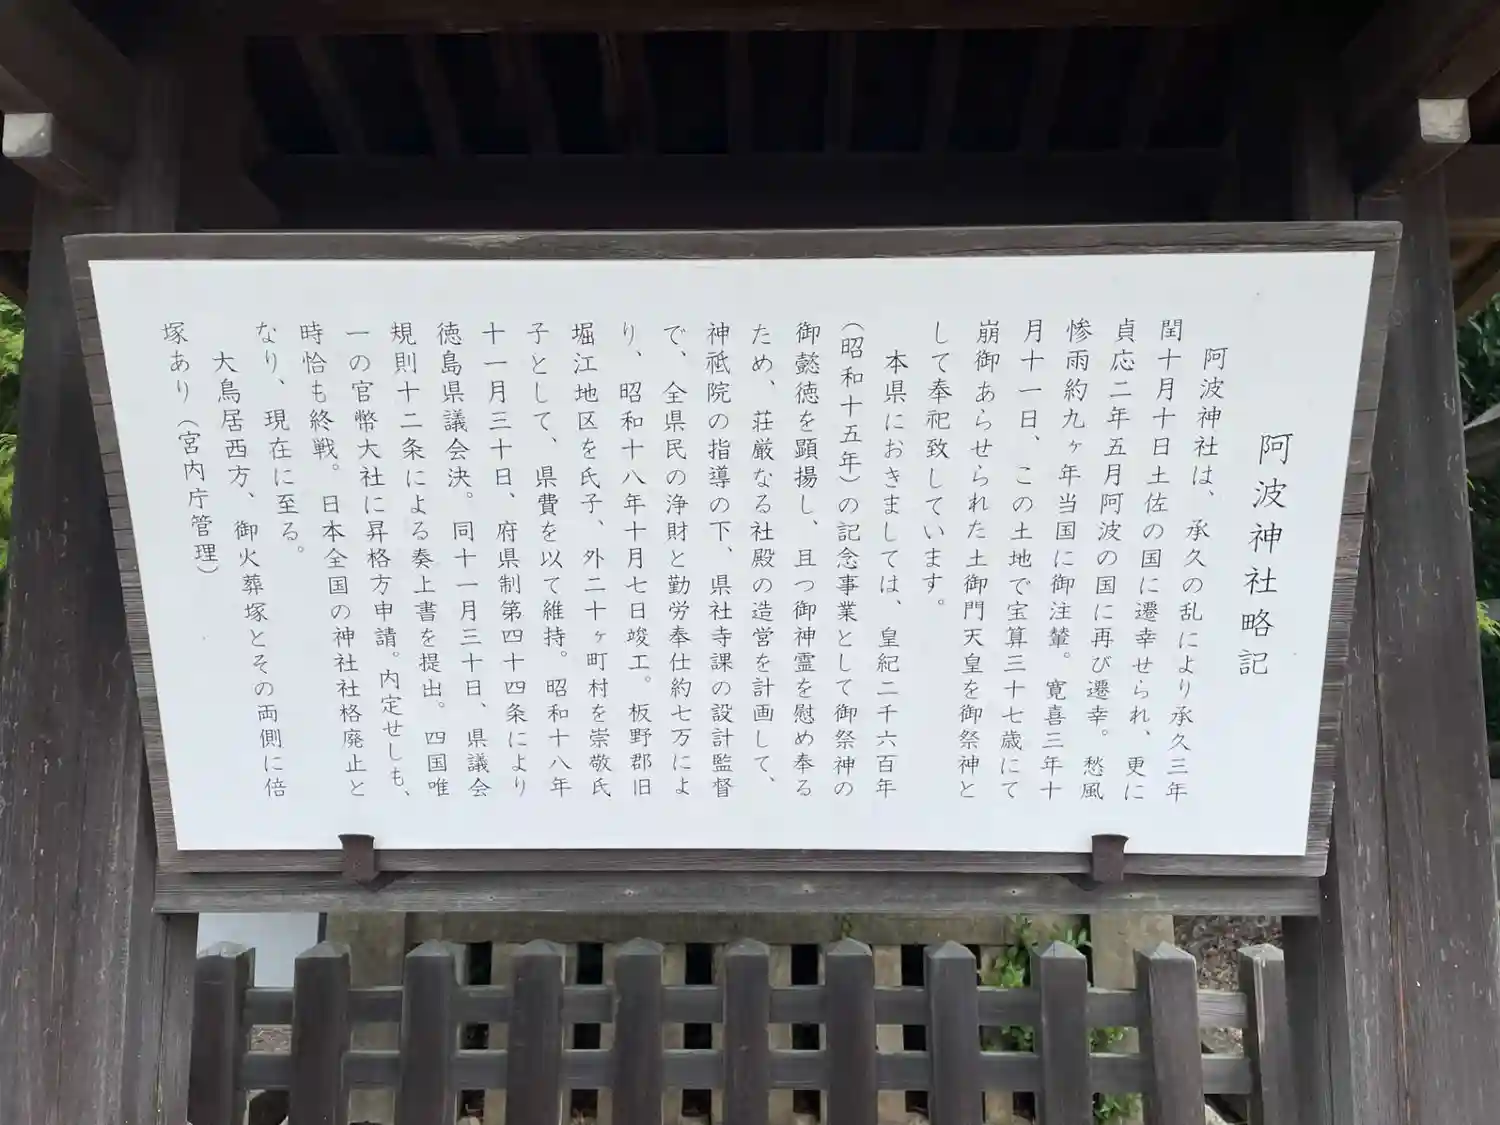 阿波神社略記
阿波神社は、承久の乱により承久三年
閏十月十日土佐の国に遷幸せられ、更に
貞応二年五月阿波の国に再び遷幸。愁風
惨雨約九ヶ年当国に御注輦。寛喜三年十
月十一日、この土地で宝算三十七歳にて
崩御あらせられた土御門天皇を御祭神と
して奉祀致しています。
本県におきましては、皇紀二千六百年
(昭和十五年)の記念事業として御祭神の
御懿徳を顕揚し、且つ御神霊を慰め奉る
ため、荘厳なる社殿の造営を計画して、
神祗院の指導の下、県社寺課の設計監督
で、全県民の浄財と勤労奉仕約七万によ
り、昭和十八年十月七日竣工。板野郡旧
堀江地区を氏子、外二十ヶ町村を崇敬氏
子として、県費を以て維持。昭和十八年
十一月三十日、府県制第四十四条により
徳島県議会決。同十一月三十日、県議会
規則十二条による奏上書を提出。四国唯
一の官幣大社に昇格方申請。内定せしも、
時恰も終戦。日本全国の神社社格廃止と
なり、現在に至る。
大鳥居西方、御火葬塚とその両側に倍
塚あり(宮内庁管理)